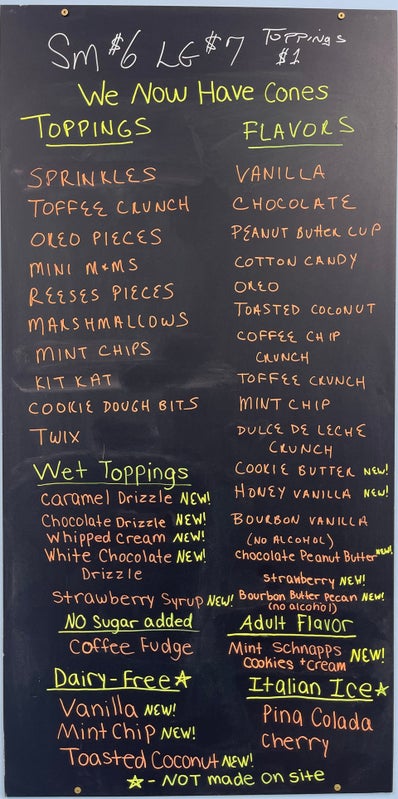 Sm $6 LG $7 TOPPINGS $1
We Now Have Cones
TOPPINGS
SPRINKLES
TOFFEE CRUNCH
OREO PIECES
MINI M&MS
REESES PIECES
MARSHMALLOWS
MINT CHIPS
KIT KAT
COOKIE DOUGH BITS
TWIX
Wet Toppings
Caramel Drizzle NEW!
Chocolate Drizzle NEW!
Whipped Cream NEW!
White Chocolate NEW!
Drizzle
Strawberry Syrup NEW!
NO Sugar added
Coffee Fudge
Dairy-Free☆
Vanilla NEW!
Mint Chip NEW!
Toasted Coconut NEW!
FLAVORS
VANILLA
CHOCOLATE
PEANUT BUTTER CUP
COTTON CANDY
OREO
TOASTED COCONUT
COFFEE CHIP
CRUNCH
TOFFEE CRUNCH
MINT CHIP
DULCE DE LECHE
CRUNCH
COOKIE BUTTER NEW!
HONEY VANILLA NEW!
BOURBON VANILLA
(NO ALCOHOL)
Chocolate Peanut Butter NEW!
Strawberry NEW!
Bourbon Butter Pecan NEW!
(no alcohol)
Adult Flavor
Mint Schnapps
Cookies + Cream NEW!
Italian Ice☆
Pina Colada
Cherry
☆ - NOT made on site